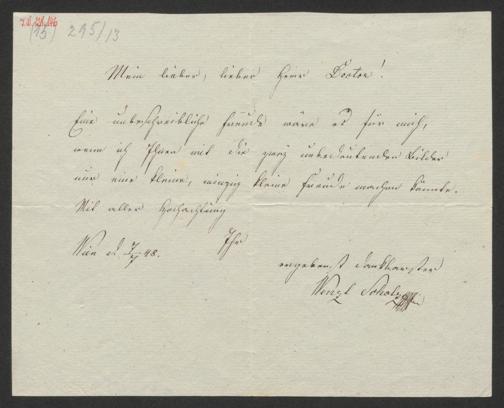 (15) 295/13
Mein lieber, lieber Herr Doctor!
Eine unbeschreibliche Freude wäre es für mich,
wenn ich Ihnen mit der ganz unbedeutenden Bilder
nur eine kleine, winzig kleine Freude machen könnte.
Mit aller Hochachtung
Ihr
Wien d. 48.
ergebenst dankbarster
Wenzl Scholz